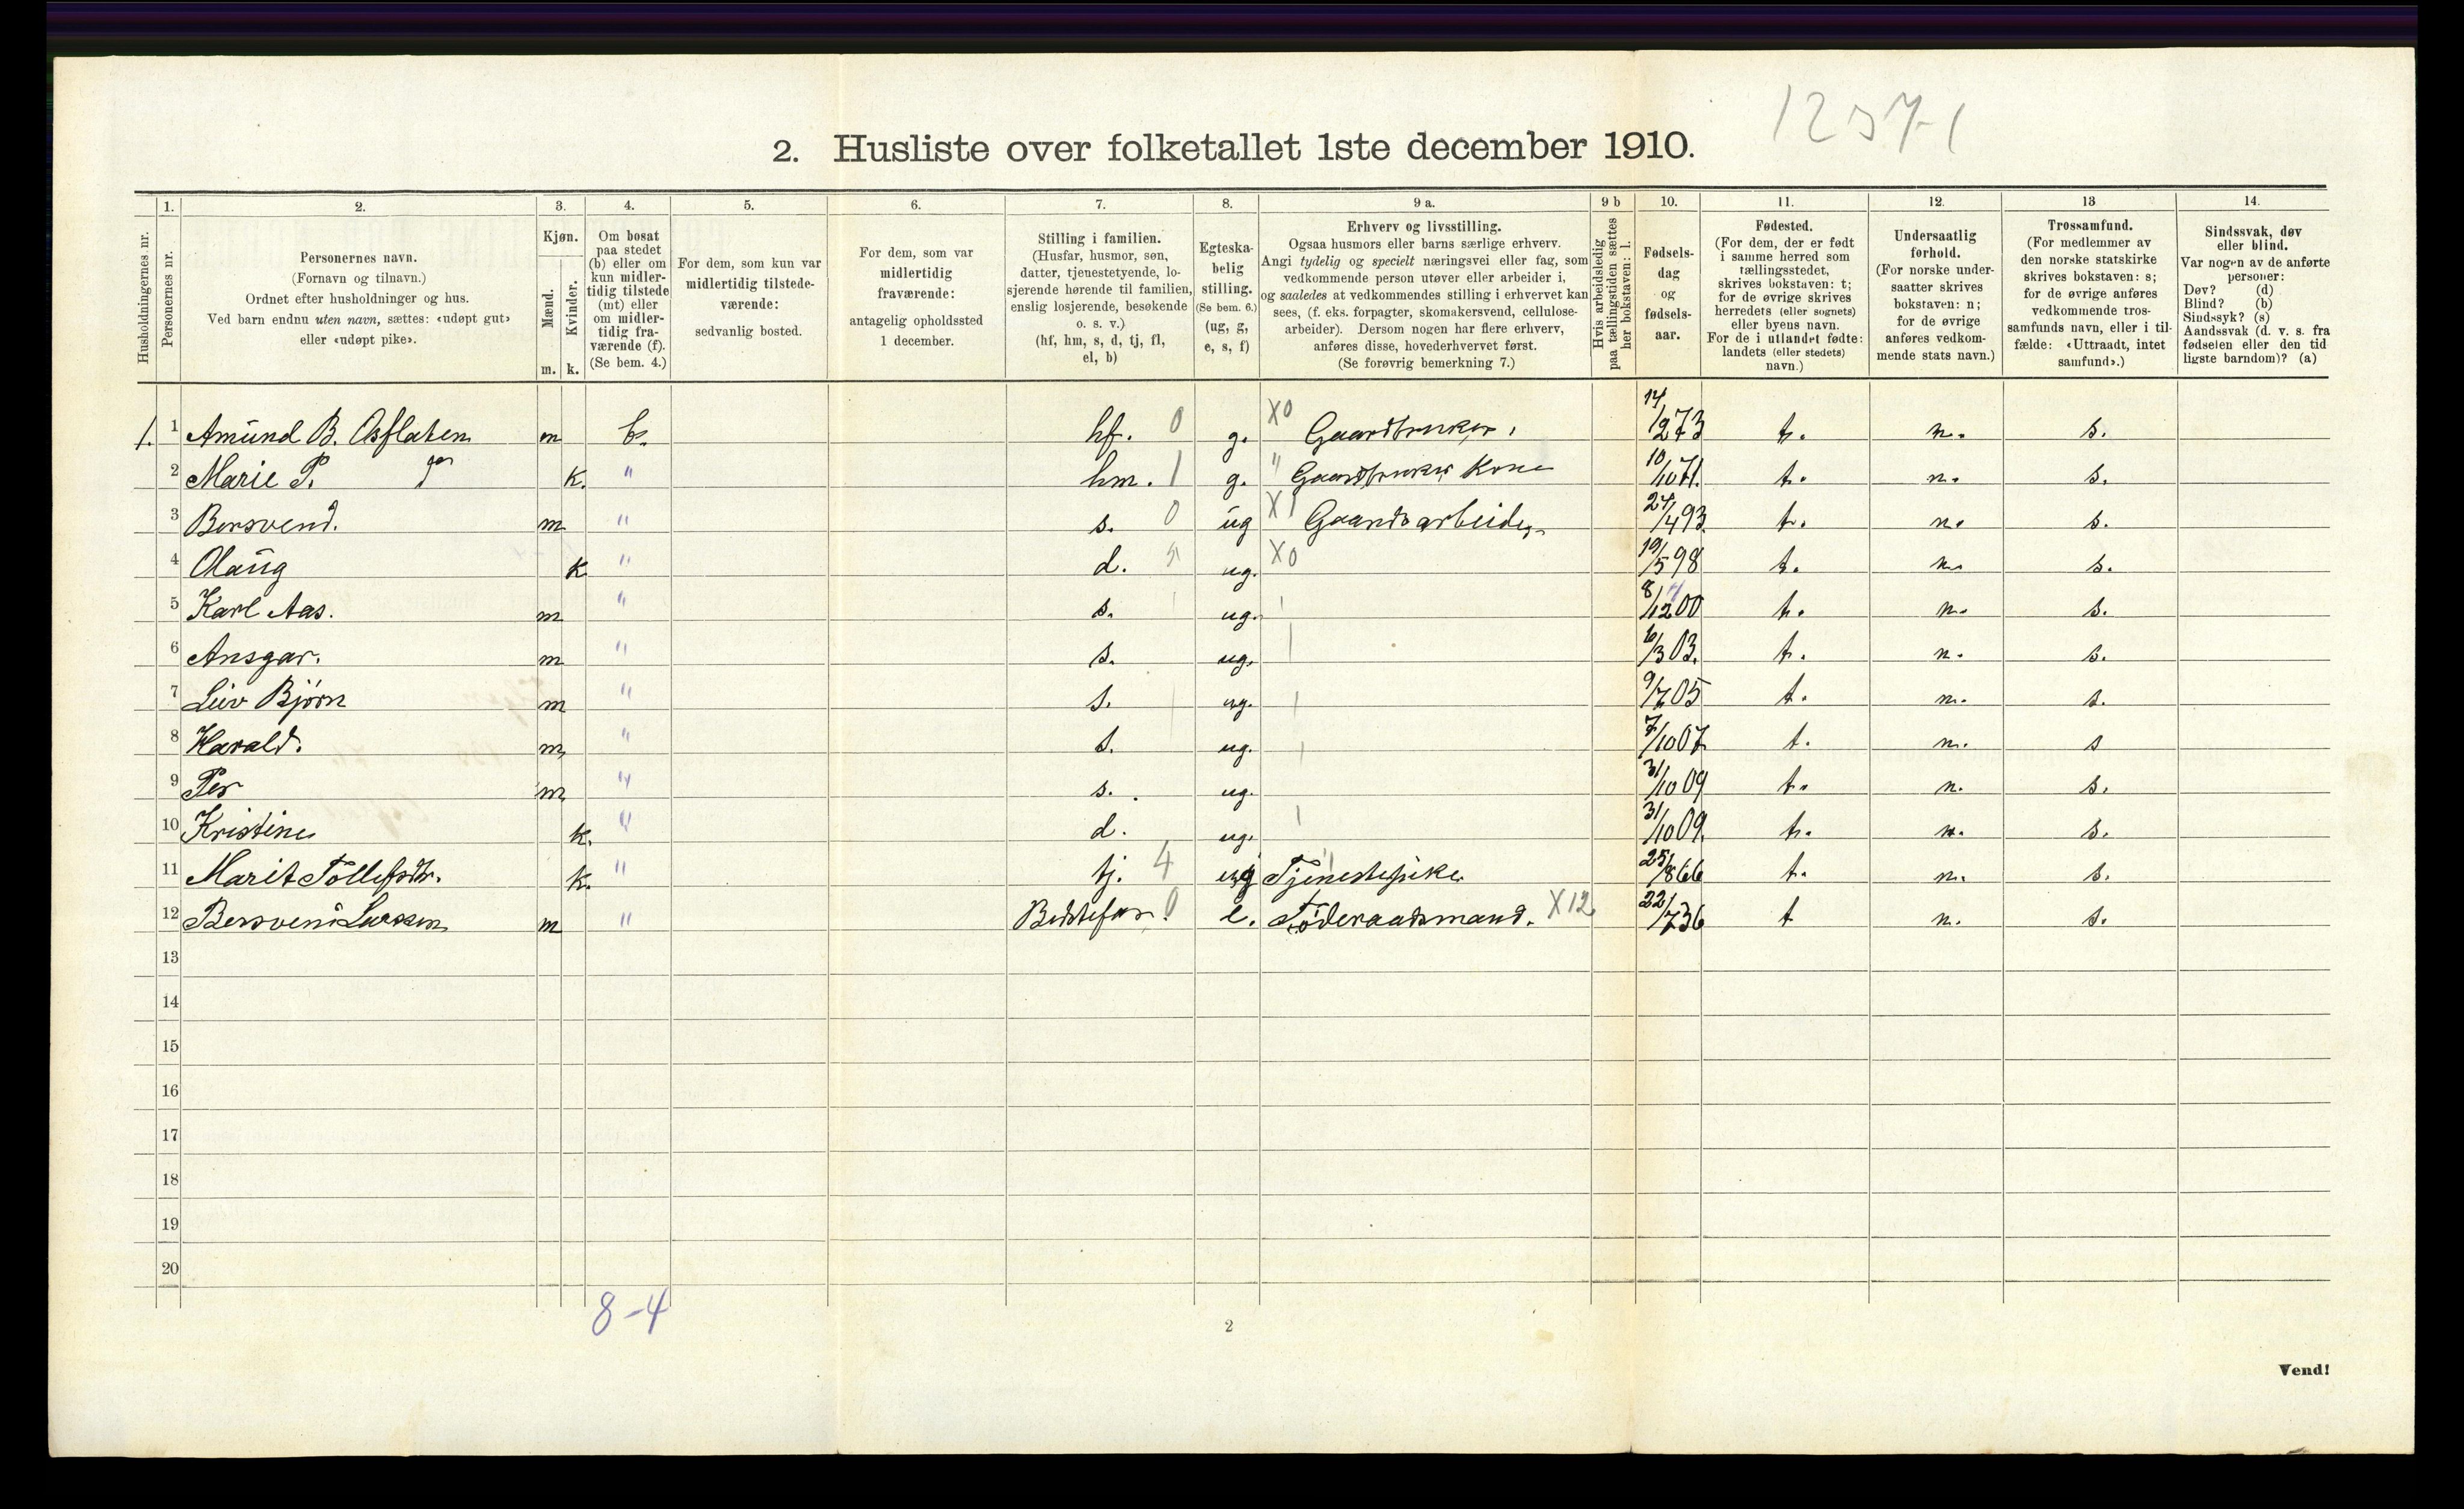 1257-1
2. Husliste over folketallet 1ste december 1910.
Husholdningernes nr.
1. Personernes nr.
2. Personernes navn. (Fornavn og tilnavn.) Ordnet efter husholdninger og hus. Ved barn endnu uten navn, sættes: «udøpt gut» eller «udøpt pike».
3. Kjøn. Mænd. m. Kvinder. k.
4. Om bosat paa stedet (b) eller om kun midlertidig tilstede (mt) eller om midlertidig fraværende (f). (Se bem. 4.)
5. For dem, som kun var midlertidig tilstedeværende: sedvanlig bosted.
6. For dem, som var midlertidig fraværende: antagelig opholdssted 1 december.
7. Stilling i familien. (Husfar, husmor, søn, datter, tjenestetyende, losjerende hørende til familien, enslig losjerende, besøkende o. s. v.) (hf, hm, s, d, tj, fl, el, b)
8. Egteskabelig stilling. (Se bem. 6.) (ug, g, e, s, f)
9 a. Erhverv og livsstilling. Ogsaa husmors eller barns særlige erhverv. Angi tydelig og specielt næringsvei eller fag, som vedkommende person utøver eller arbeider i, og saaledes at vedkommendes stilling i erhvervet kan sees, (f. eks. forpagter, skomakersvend, cellulosearbeider). Dersom nogen har flere erhverv, anføres disse, hovederhvervet først. (Se forøvrig bemerkning 7.)
9 b Hvis arbeidsledig paa tællingstiden sættes her bokstaven: l.
10. Fødselsdag og fødselsaar.
11. Fødested. (For dem, der er født i samme herred som tællingsstedet, skrives bokstaven: t; for de øvrige skrives herredets (eller sognets) eller byens navn. For de i utlandet fødte: landets (eller stedets) navn.)
12. Undersaatlig forhold. (For norske undersaatter skrives bokstaven: n; for de øvrige anføres vedkommende stats navn.)
13 Trossamfund. (For medlemmer av den norske statskirke skrives bokstaven: s; for de øvrige anføres vedkommende trossamfunds navn, eller i tilfælde: «Uttraadt, intet samfund».)
14. Sindssvak, døv eller blind. Var nogen av de anførte personer: Døv? (d) Blind? (b) Sindssyk? (s) Aandssvak (d. v. s. fra fødselen eller den tidligste barndom)? (a)
1. 1 Amund B. Osflaten m b. hf. 0 g. X0 Gaardbruker. 14/12 73 t. n. s.
2 Marie P. k. " hm. 1 g. " Gaardbruker Kone 10/10 71. t. n. s.
3 Bersvend. m " s. 0 ug X1 Gaardsarbeider 24/4 93. t. n. s.
4 Olaug k " d. ug. X0 19/5 98 t. n. s.
5 Karl Aas. m " s. ug. 8/12 00 t. n. s.
6 Ansgar. m " s. ug. 6/3 03. t. n. s.
7 Leiv Bjørn m " s. ug. 9/7 05 t. n. s.
8 Harald. m " s. ug. 7/10 07 t. n. s
9 Per m " s. ug. 31/10 09 t. n. s.
10 Kristine k. " d. ug. 31/10 09. t. n. s.
11 Marit Tollefsdtr. k. " tj. 4 ug Tjenestepike 25/8 66 t. n. s.
12 Bersvend Larsen m " Bedstefar. 0 e. Føderaadsmand. X12 22/7 36 t n. s.
13
14
15
16
17
18
19
20
8-4
2
Vend!